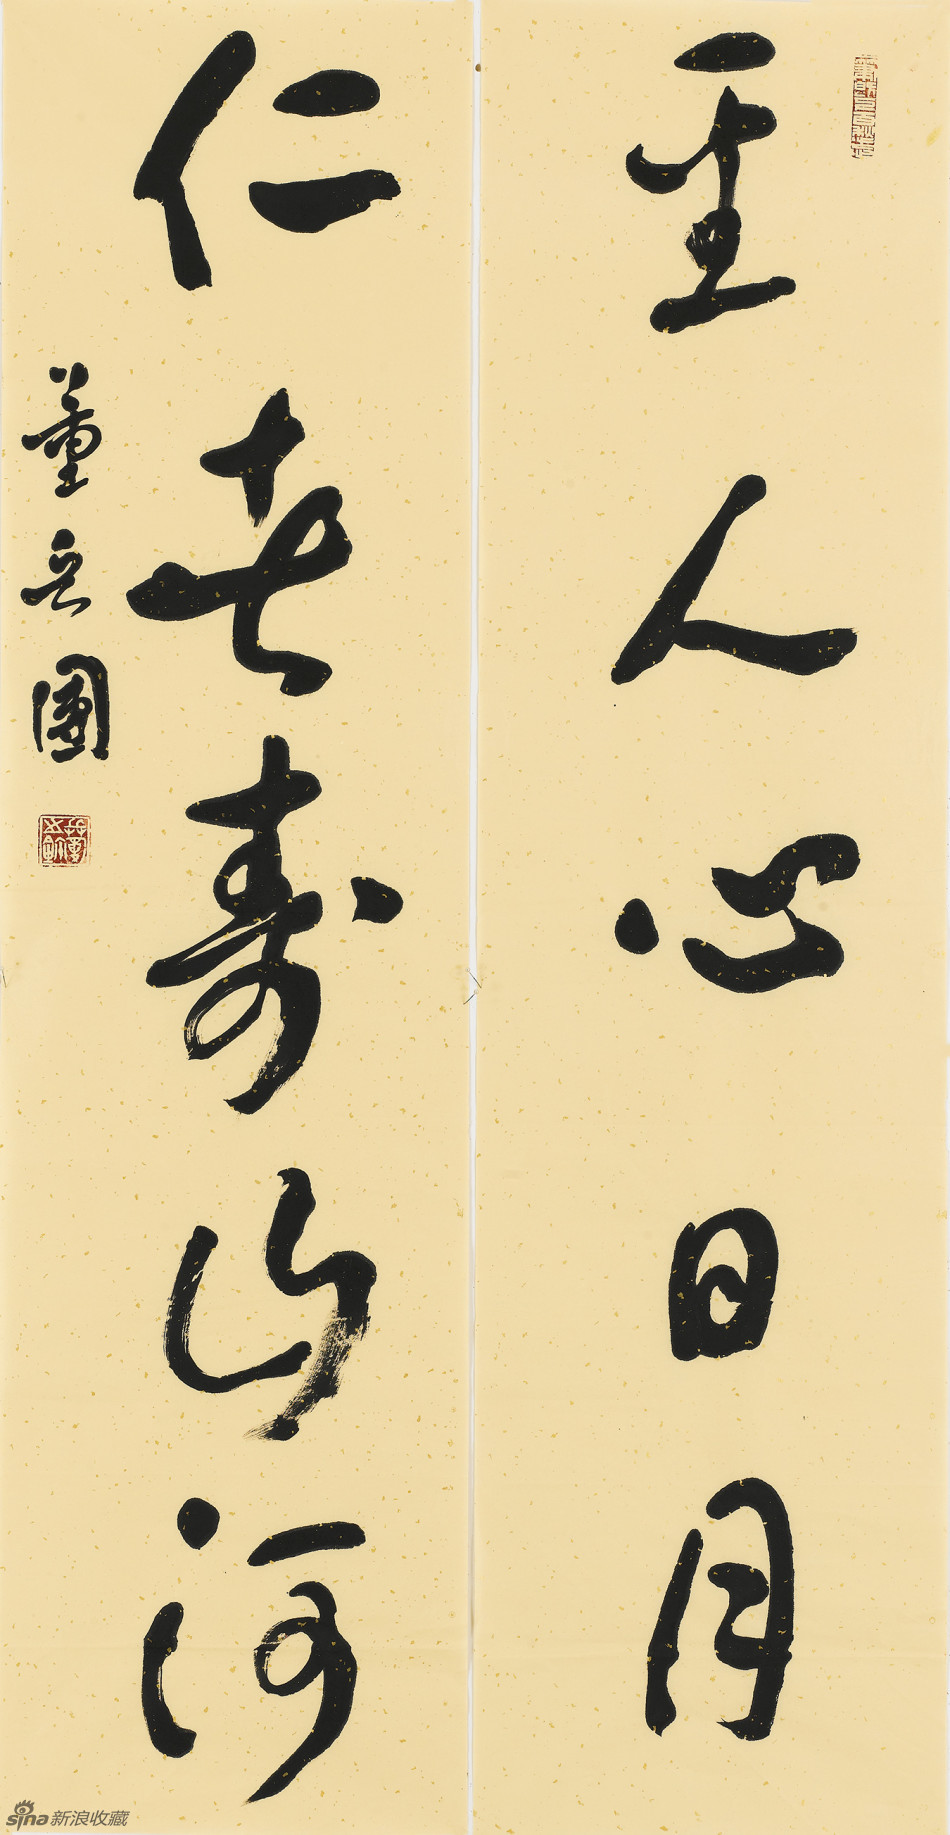 聖人心日月
仁者壽山河
董
sina新浪收藏